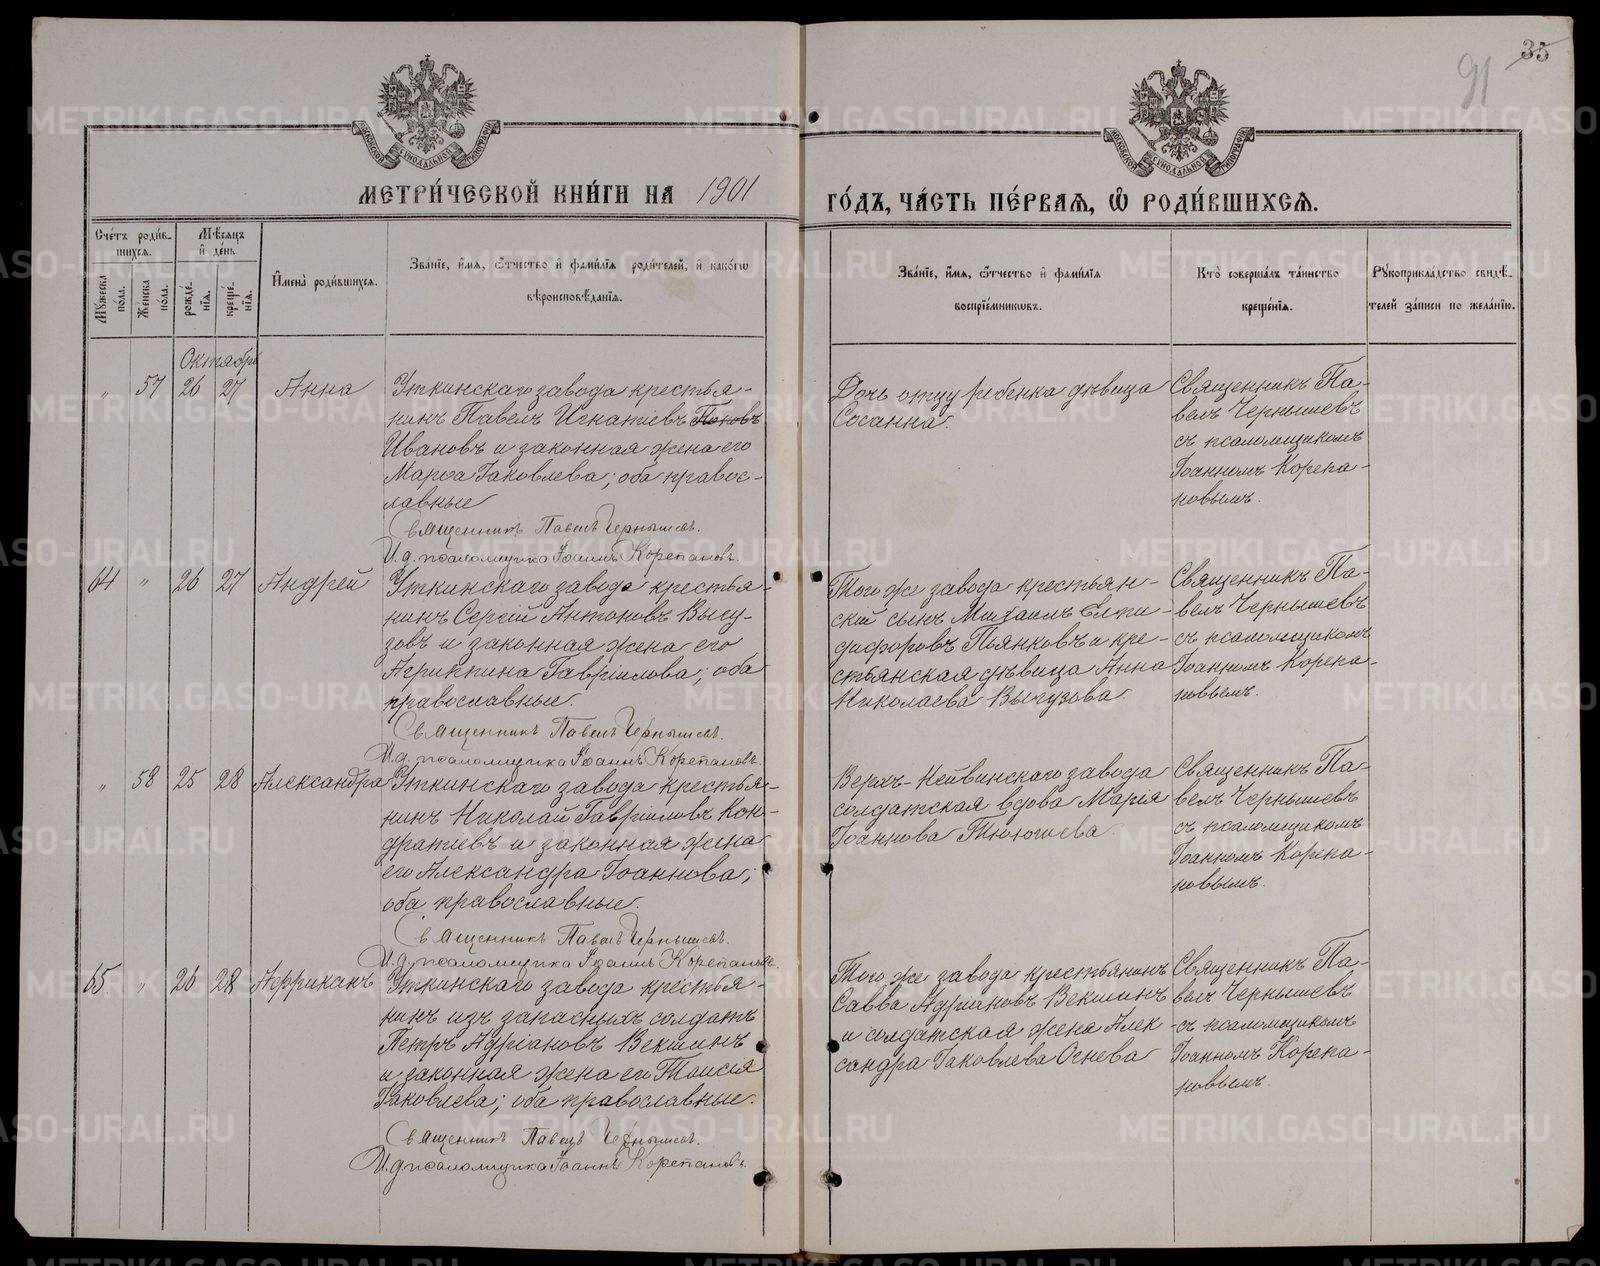 35
91
МЕТРИ́ЧЕСКОЙ КНИ́ГИ НА 1901
ГО́ДЪ, ЧА́СТЬ ПЕ́РВАѦ, Ѡ҆ РОДИ́ВШИХСѦ.
Сче́тъ роди́в-
шихсѧ.
Мѣ́сѧцъ
и҆ де́нь
Мꙋ́жеска по́ла.
Же́нска по́ла.
рожде́-нїѧ.
креще́-нїѧ.
И҆мена̀ роди́вшихсѧ.
Зва́нїе, и҆́мѧ, ѻ҆́тчество и҆ фами́лїѧ роди́телей, и҆ како́гѡ
вѣроисповѣ́данїѧ.
Зва́нїе, и҆́мѧ, ѻ҆́тчество и҆ фами́лїѧ
воспрїе́мникѡвъ.
Кто̀ соверша́лъ та́инство
креще́нїѧ.
Рꙋкоприкла́дство свидѣ́-
телей за́писи по жела́нїю.
Октябрь
" 57 26 27 Анна
Уткинскаго завода крестья-
нинъ Павелъ Игнатіевъ Поповъ
Ивановъ и законная жена его
Марѳа Іаковлева; оба правос-
лавные
Священникъ Павелъ Чернышевъ.
И.д. псаломщика Іоаннъ Корепановъ.
Дочь отцу ребенка дѣвица
Сосанна.
Священникъ Па-
велъ Чернышевъ
съ псаломщикомъ
Іоанномъ Корепа-
новымъ.
64 " 26 27 Андрей
Уткинскаго завода крестья-
нинъ Сергій Антоновъ Выгу-
зовъ и законная жена его
Агриппина Гавріилова; оба
православные.
Священникъ Павелъ Чернышевъ.
И.д. псаломщика Іоаннъ Корепановъ.
Того же завода крестьян-
скій сынъ Михаилъ Елпи-
дифоровъ Пьянковъ и кре-
стьянская дѣвица Анна
Николаева Выгузова.
Священникъ Па-
велъ Чернышевъ
съ псаломщикомъ
Іоанномъ Корепа-
новымъ.
" 58 25 28 Александра
Уткинскаго завода крестья-
нинъ Николай Гавріиловъ Кон-
дратьевъ и законная жена
его Александра Іоаннова;
оба православные.
Священникъ Павелъ Чернышевъ.
И.д. псаломщика Іоаннъ Корепановъ.
Верхъ-Нейвинскаго завода
солдатская вдова Марія
Іоаннова
Священникъ Па-
велъ Чернышевъ
съ псаломщикомъ
Іоанномъ Корепа-
новымъ.
65. " 26 28 Африканъ
Уткинскаго завода крестья-
нинъ изъ запасныхъ солдатъ
Петръ Адріановъ Векшинъ
и законная жена его Таисія
Іаковлева; оба православные.
Священникъ Павелъ Чернышевъ.
И.д. псаломщика Іоаннъ Корепановъ.
Того же завода крестьянинъ
Савва Адриановъ Векшинъ
и солдатская жена Алек-
сандра Іаковлева Огнева
Священникъ Па-
велъ Чернышевъ
съ псаломщикомъ
Іоанномъ Корепа-
новымъ.
METRIKI.GASO-URAL.RU